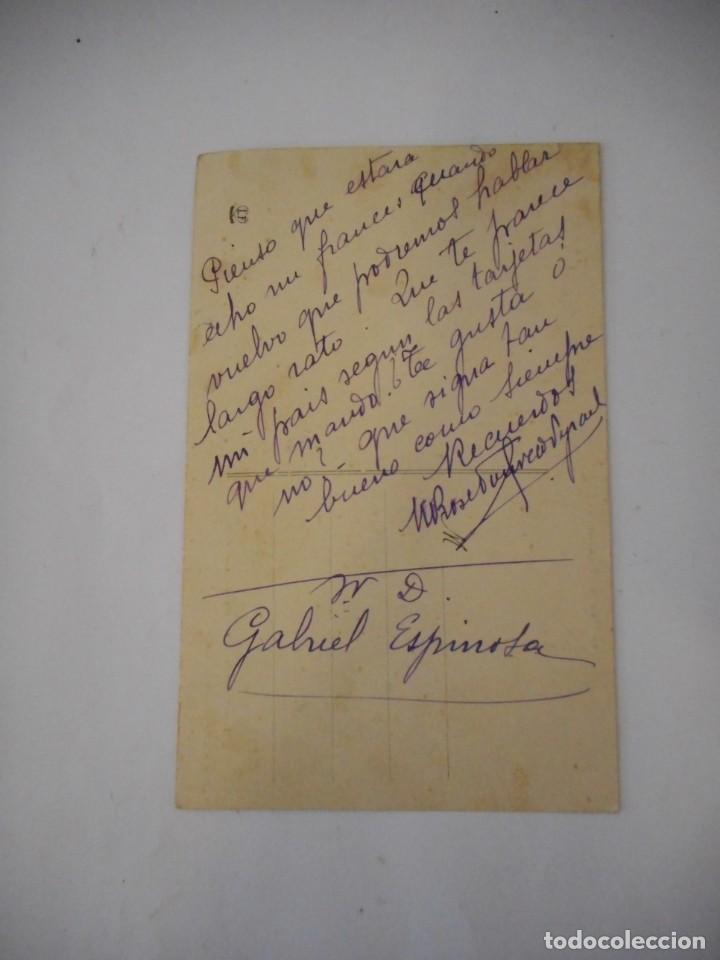 Pienso que estara
echo un frances Quando
vuelvo que podremos hablar
largo rato. Que te parece
mi pais segun las tarjetas
que mando? Te gusta o
no? que sigua tan
bueno como siempre
Recuerdos
Sr D.
Gabriel Espinosa
todocoleccion
todocoleccion.net